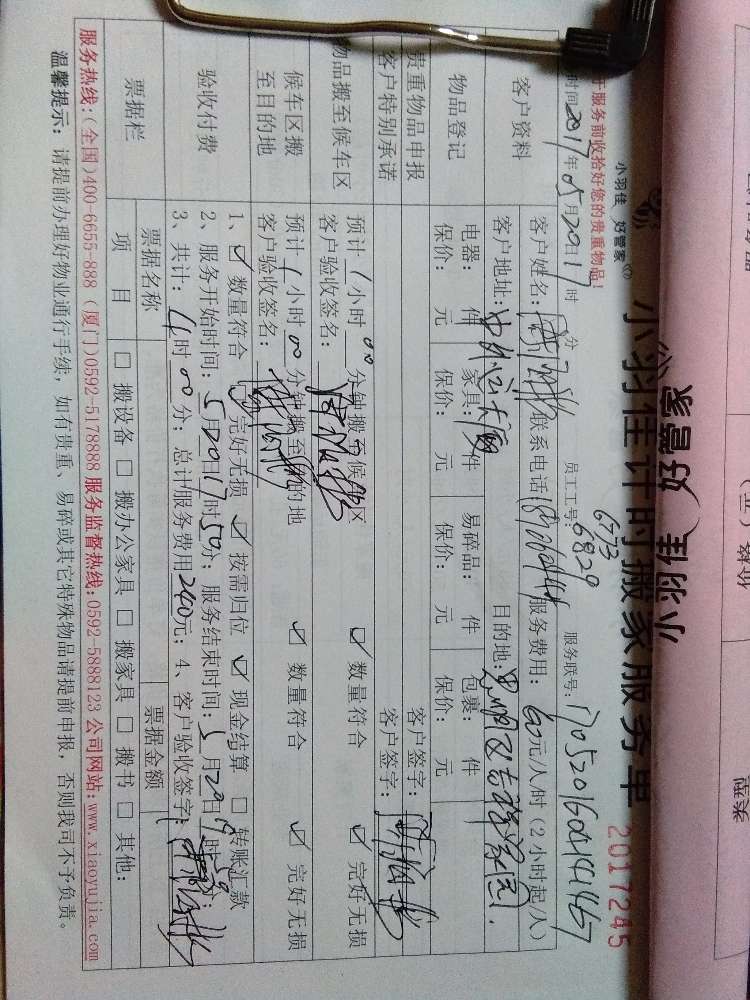 小羽佳 好管家
小羽佳计时搬家服务单
2017245
服务前收拾好您的贵重物品!
员工工号: 6773
6829
服务联号: 1705201604141467
时间 2017年05月20日17时 分
客户资料
客户姓名: 联系电话 服务费用: 60元/人/时 (2小时起/人)
客户地址: 中外运大厦 目的地:
物品登记
电器: 件 家具: 件 易碎品: 件 包裹: 件
保价: 元 保价: 元 保价: 元 保价: 元
贵重物品申报 客户签字:
客户特别承诺 客户签字:
物品搬至候车区
预计 1 小时 00 分钟搬至候车区 ☑ 数量符合 ☑ 完好无损
客户验收签名:
候车区搬至目的地
预计 1 小时 00 分钟搬至目的地 ☑ 数量符合 ☑ 完好无损
客户验收签名:
验收付费
1、☑ 数量符合 完好无损 ☑ 按需归位 ☑ 现金结算 □ 转账汇款
2、服务开始时间: 5月20日17时50分; 服务结束时间: 5月20日
3、共计: 4时00分; 总计服务费用240元; 4、客户验收签字:
票据栏
票据名称 票据金额
项 目 □ 搬设备 □ 搬办公家具 □ 搬家具 □ 搬书 □ 其他:
服务热线: (全国)400-6655-888 (厦门)0592-5178888 服务监督热线:0592-5888123 公司网站:www.xiaoyujia.com
温馨提示: 请提前办理好物业通行手续, 如有贵重、易碎或其它特殊物品请提前申报, 否则我司不予负责。